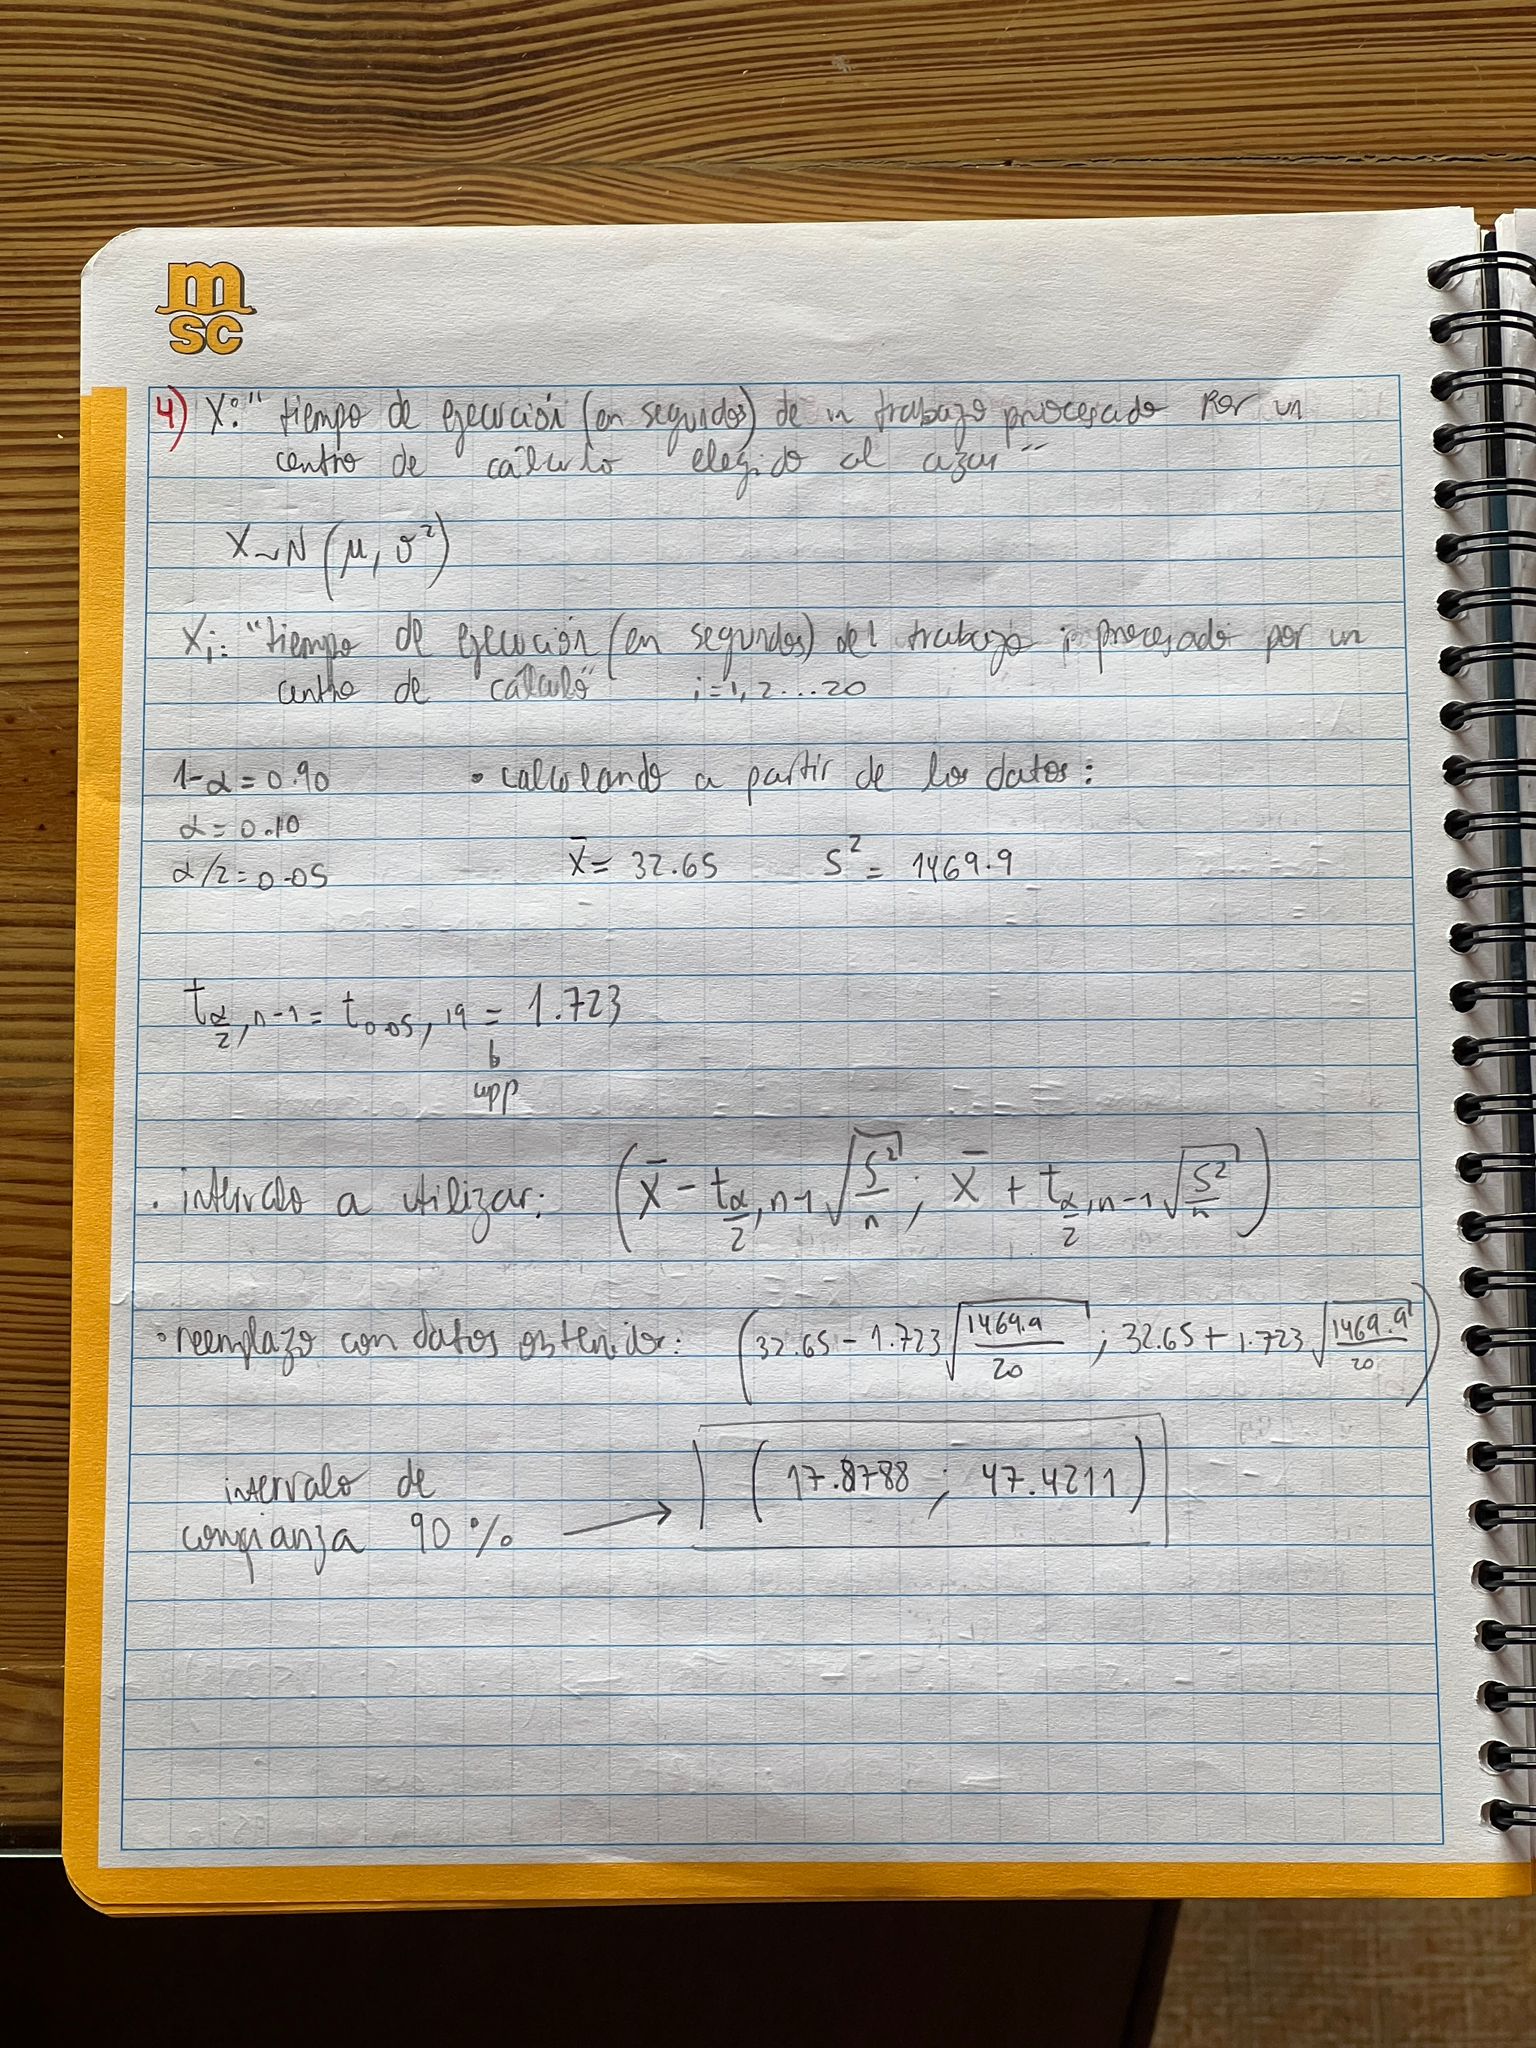 msc
4) X: "tiempo de ejecución (en segundos) de un trabajo procesado por un
centro de cálculo elegido al azar"
X~N(μ, σ²)
Xi: "tiempo de ejecución (en segundos) del trabajo i procesado por un
centro de cálculo" i=1, 2...20
1-α=0.90 • calculando a partir de los datos:
α=0.10
α/2=0.05 x̄= 32.65 S²= 1469.9
t α/2, n-1 = t 0.05, 19 = 1.723
app
. intervalo a utilizar: (X̄ - t α/2, n-1 √(S²/n) ; X̄ + t α/2, n-1 √(S²/n))
• reemplazo con datos obtenidos: (32.65 - 1.723 √(1469.9/20) ; 32.65 + 1.723 √(1469.9/20))
intervalo de
confianza 90% → (17.8788 ; 47.4211)